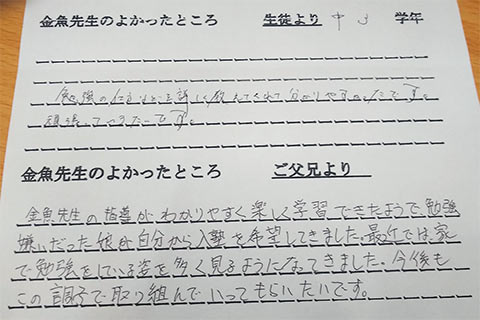 金魚先生のよかったところ 生徒より 中 3 学年
勉強の仕方などを詳しく教えてくれて分かりやすかったです。
頑張っていきたいです。
金魚先生のよかったところ ご父兄より
金魚先生の指導がわかりやすく楽しく学習できたようで、勉強
嫌いだった娘が自分から入塾を希望してきました。最近では、家
で勉強をしている姿を多く見るようになってきました。今後も
この調子で取り組んでいってもらいたいです。